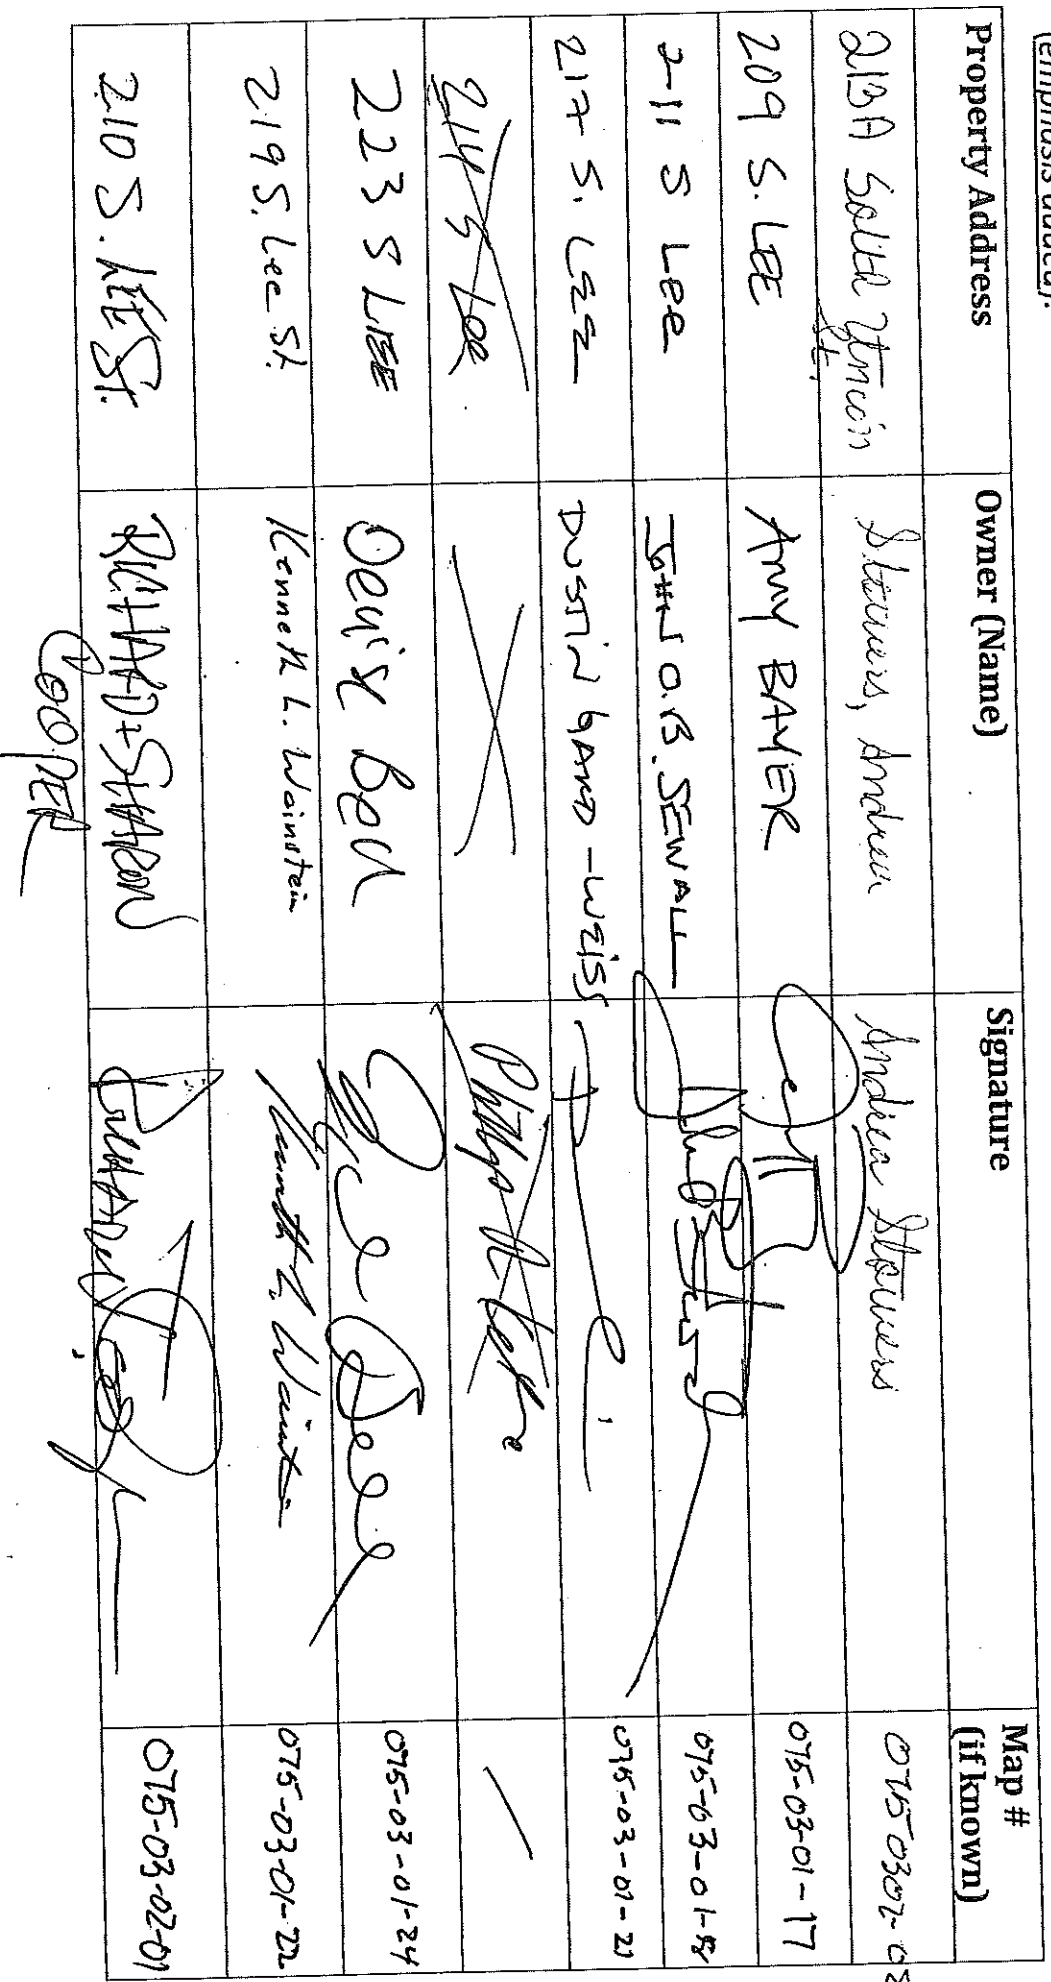 (emphasis added).
Property Address Owner (Name) Signature Map # (if known)
213A South Union St. Stowers, Andrea Andrea Stowers 075 0302-03
209 S. LEE AMY BAYER 075-03-01-17
211 S Lee JOHN O.B. SEWALL 075-03-01-
217 S. LEE DUSTIN GARD-WEISS 075-03-01-21
214 S Lee
223 S LEE 075-03-01-24
219 S. Lee St. Kenneth L. Weinstein Kenneth L. Weinstein 075-03-01-22
210 S. LEE St. RICHARD + SHARON COOPER 075-03-02-01